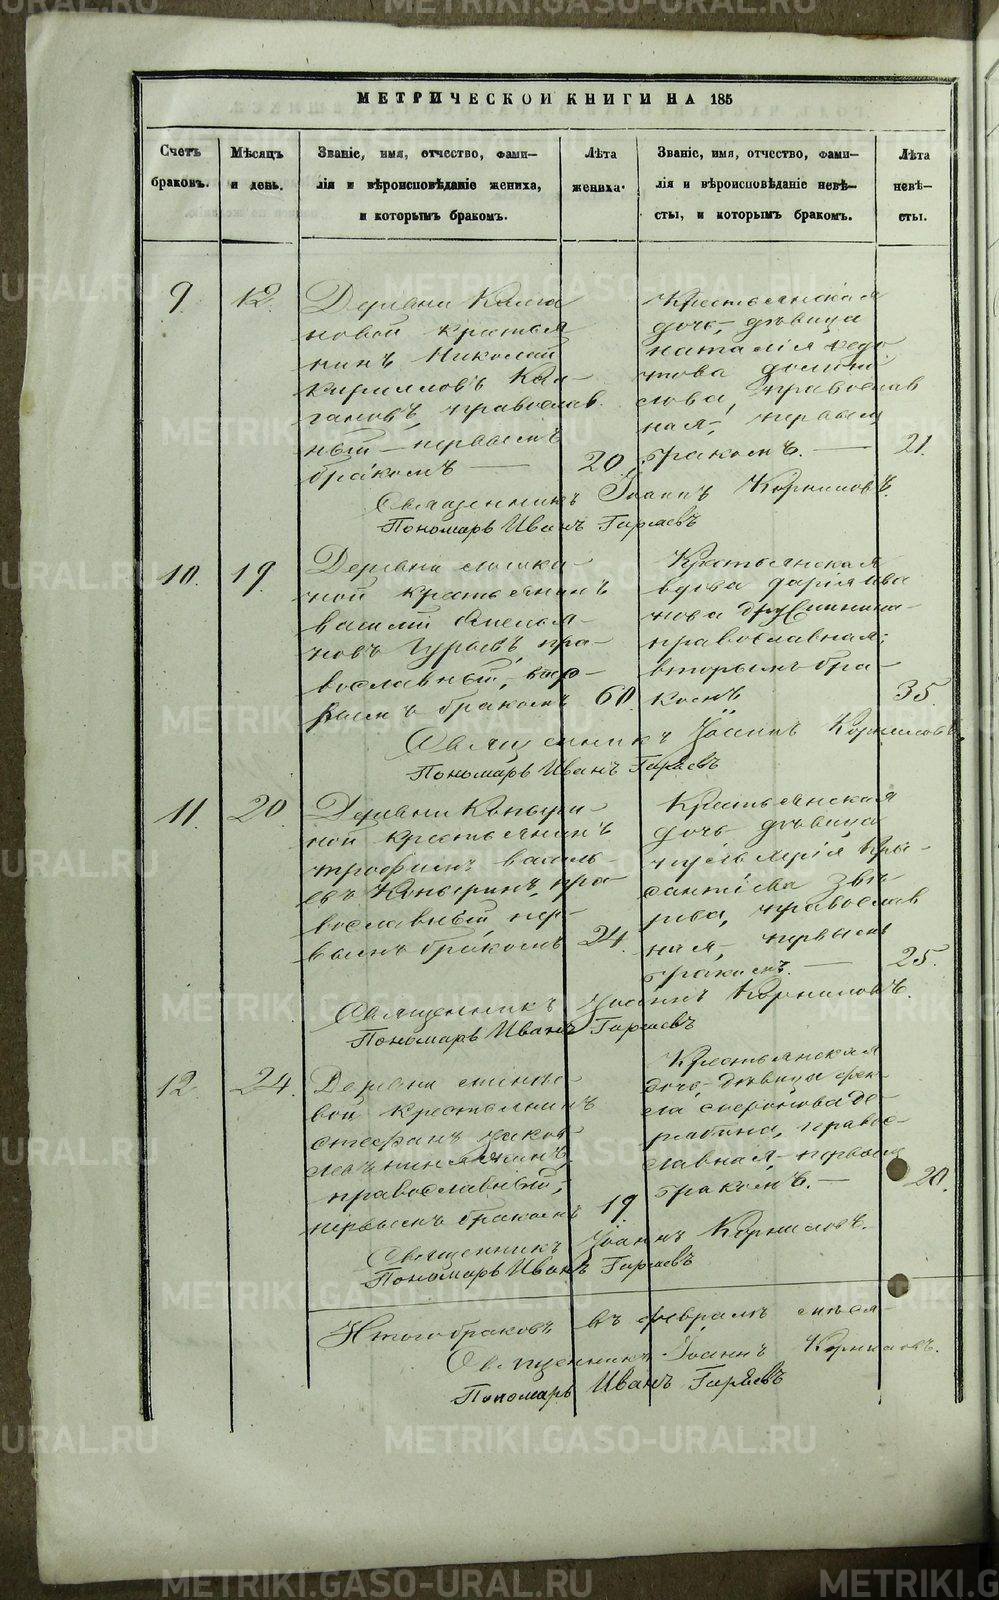 МЕТРИЧЕСКОЙ КНИГИ НА 185
Счетъ браковъ.
Мѣсяцъ и день.
Званіе, имя, отчество, фами-
лія и вѣроисповѣданіе жениха,
и которымъ бракомъ.
Лѣта жениха.
Званіе, имя, отчество, фами-
лія и вѣроисповѣданіе невѣ-
сты, и которымъ бракомъ.
Лѣта невѣ-
сты.
9. 12.
Деревни Калга
новой крестья
нинъ Николай
Кирилловъ Кал-
гановъ, православ
ный первымъ
бракомъ — 20.
Крестьянская
дочь, дѣвица
Наталія Ѳедо
това
слова, православ
ная, первым
бракомъ. — 21.
Священникъ Іоаннъ Корниловъ.
Пономарь Иванъ Гаряевъ
10. 19.
Деревни
ной крестьянинъ
Василій Емелья
новъ Гурьевъ, пра-
вославный, вто-
рымъ бракомъ 60.
Крестьянская
вдова Дарія Ива
нова Дружинина
православная,
вторымъ бра-
комъ 35.
Священникъ Іоаннъ Корниловъ.
Пономарь Иванъ Гаряевъ
11. 20.
Деревни Копыри-
ной крестьянинъ
Трофимъ Василь-
евъ Копыринъ, пра-
вославный, пер-
вымъ бракомъ 24.
Крестьянская
дочь дѣвица
Хры-
сантіева Звѣ
рева, православ
ная, первымъ
бракомъ. — 25.
Священникъ Іоаннъ Корниловъ.
Пономарь Иванъ Гаряевъ
12. 24.
Деревни
вой крестьянинъ
Стефанъ Яков-
левъ
православный,
первымъ бракомъ 19
Крестьянская
дочь дѣвица Фек-
ла
православ-
лавная, первымъ
бракомъ. — 20.
Священникъ Іоаннъ Корниловъ.
Пономарь Иванъ Гаряевъ
Итого браковъ въ февралѣ
Священникъ Іоаннъ Корниловъ.
Пономарь Иванъ Гаряевъ
METRIKI.GASO-URAL.RU